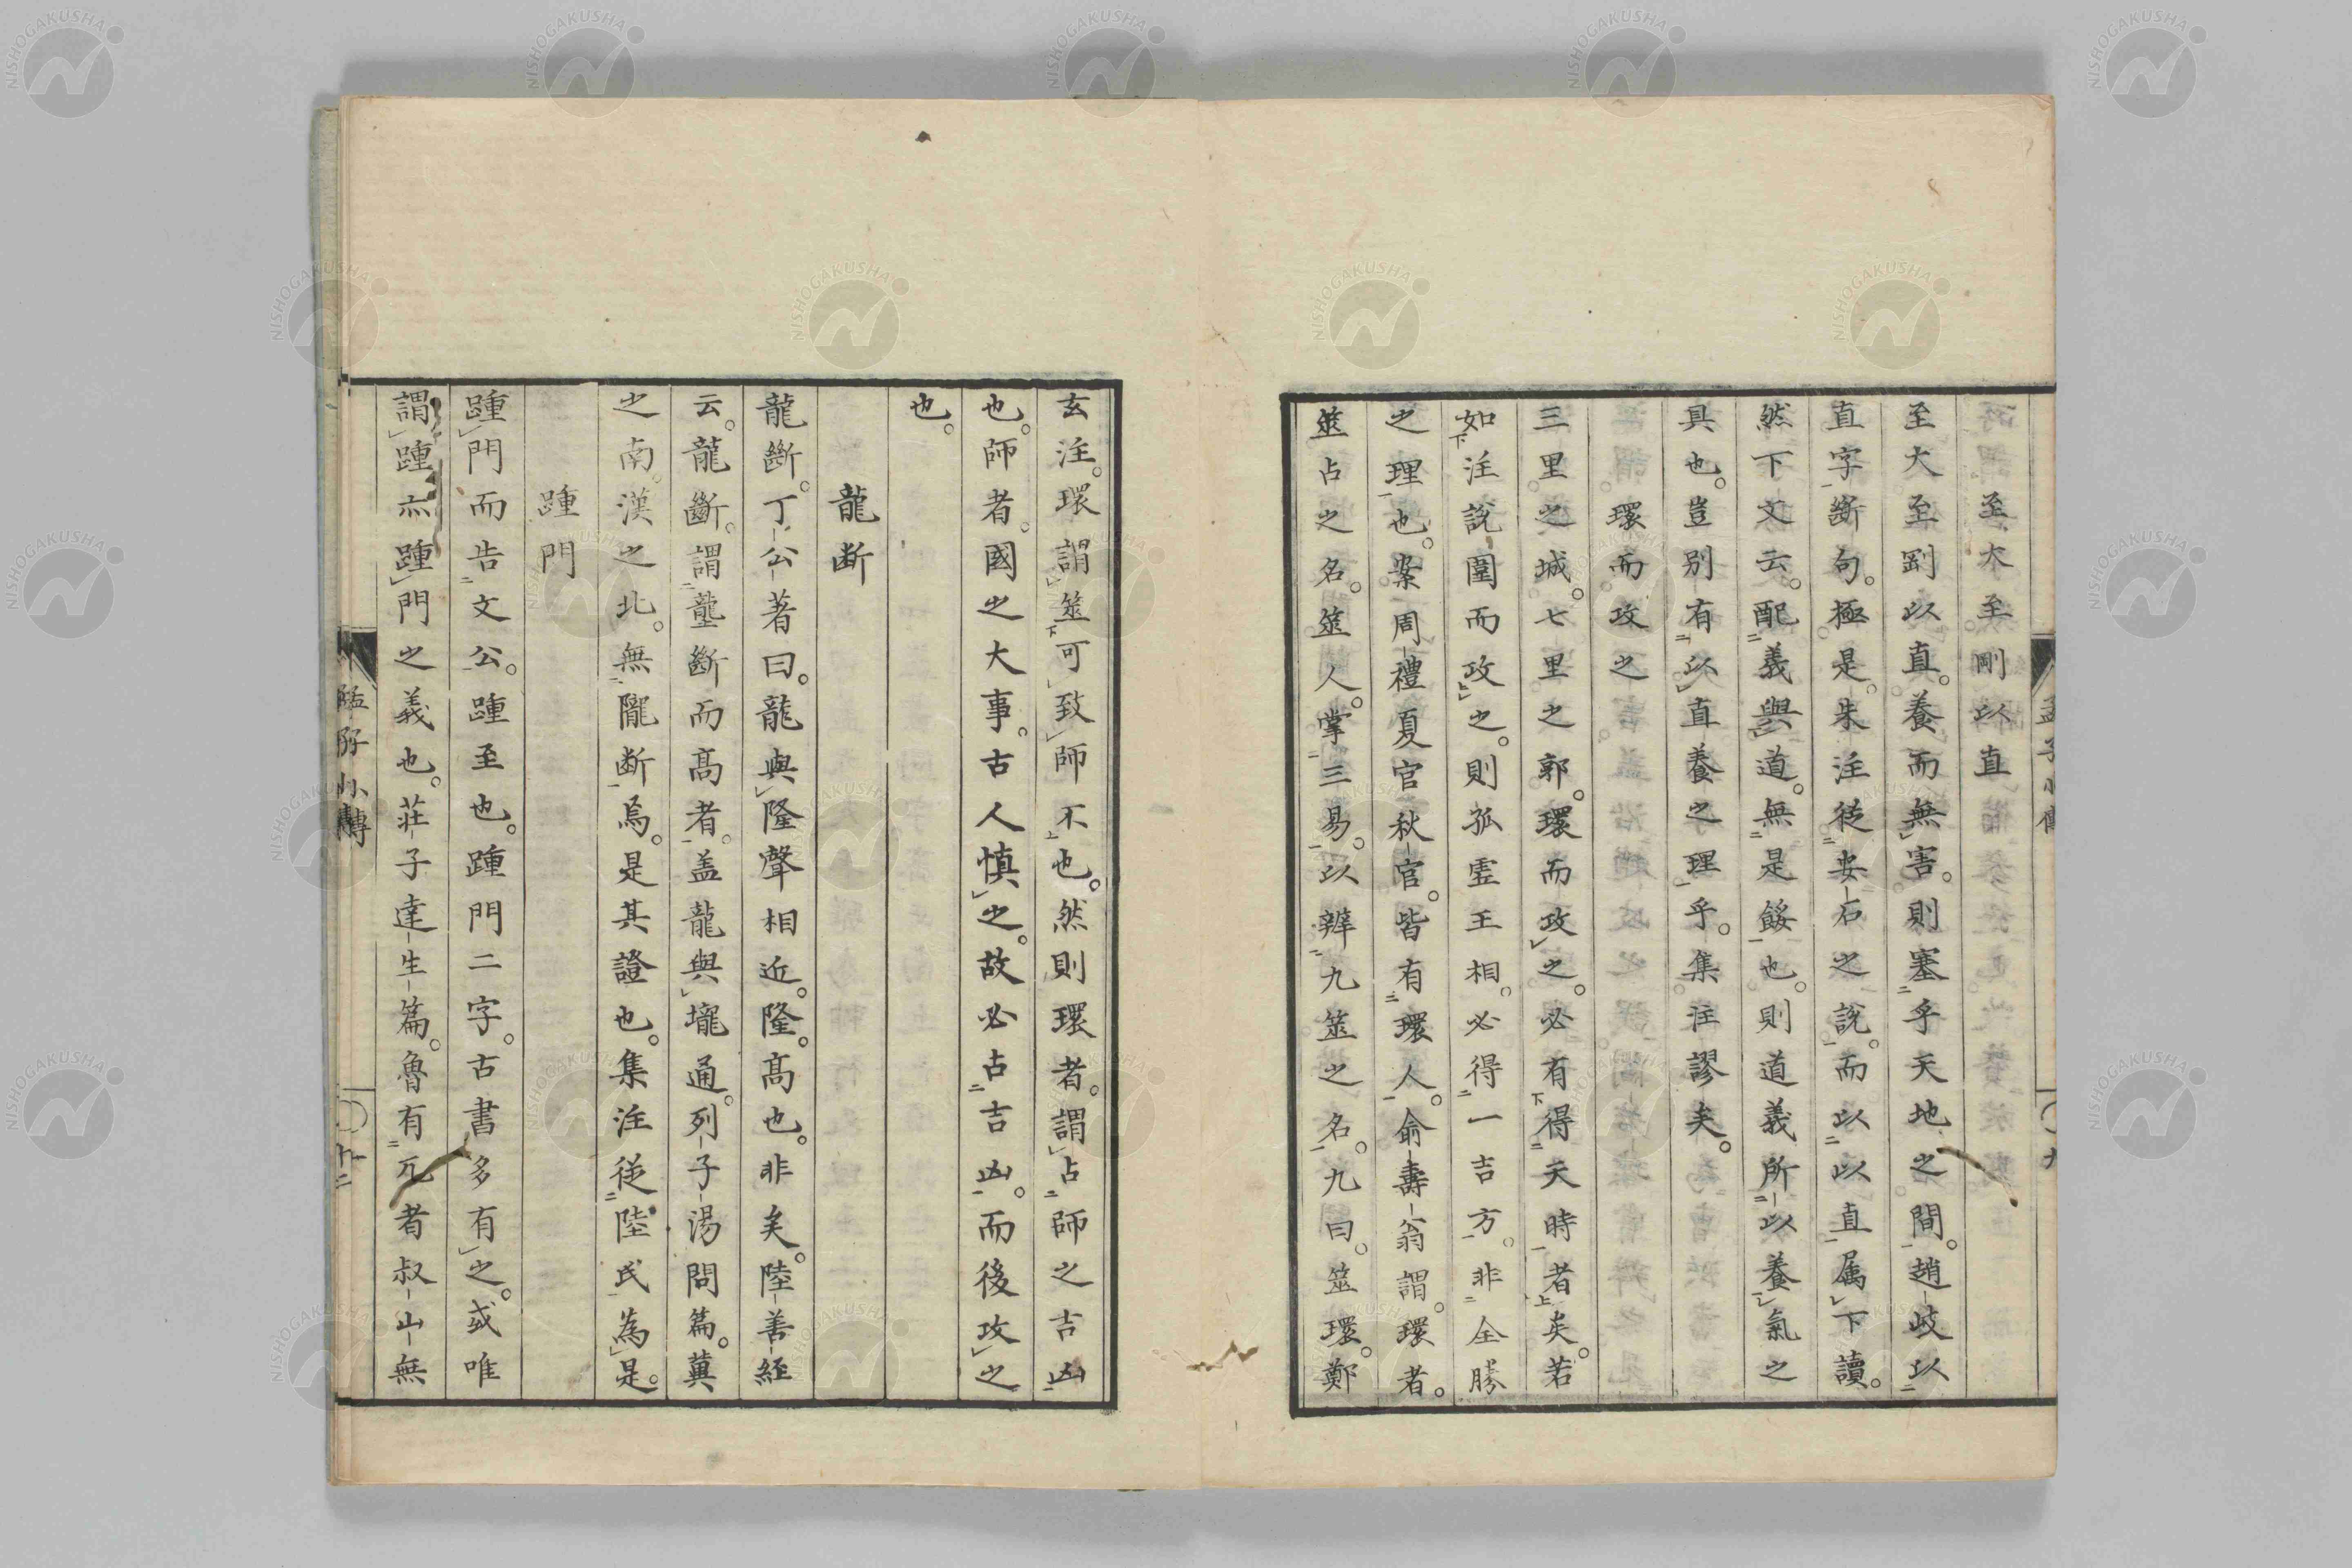 至大至剛以直
至大至剛以直。養而無害。則塞乎天地之間。趙岐以
直字断句。極是。朱注従安石之説。而以以直属下讀。
然下文云。配義與道。無是餒也。則道義所以養氣之
具也。豈別有以直養之理乎。集注謬矣。
環而攻之
三里之城。七里之郭。環而攻之。必有得天時者矣。若
如注説圍而攻之。則孤虚王相。必得一吉方。非全勝
之理也。案周禮夏官秋官。皆有環人。俞壽翁謂。環者。
筮占之名。筮人。掌三易。以辨九筮之名。九曰。筮環。鄭
玄注。環謂筮可致師不也。然則環者。謂占師之吉凶
也。師者。國之大事。古人慎之。故必占吉凶。而後攻之
也。
龍断
龍斷。丁公著曰。龍與隆聲相近。隆。高也。非矣。陸善經
云。龍斷。謂壟斷而高者。盖龍與壠通。列子湯問篇。冀
之南。漢之北。無隴断焉。是其證也。集注従陸氏為是。
踵門
踵門而告文公。踵至也。踵門二字。古書多有之。或唯
謂踵亦踵門之義也。荘子達生篇。魯有兀者叔山無
孟子小傳
NISHOGAKUSHA